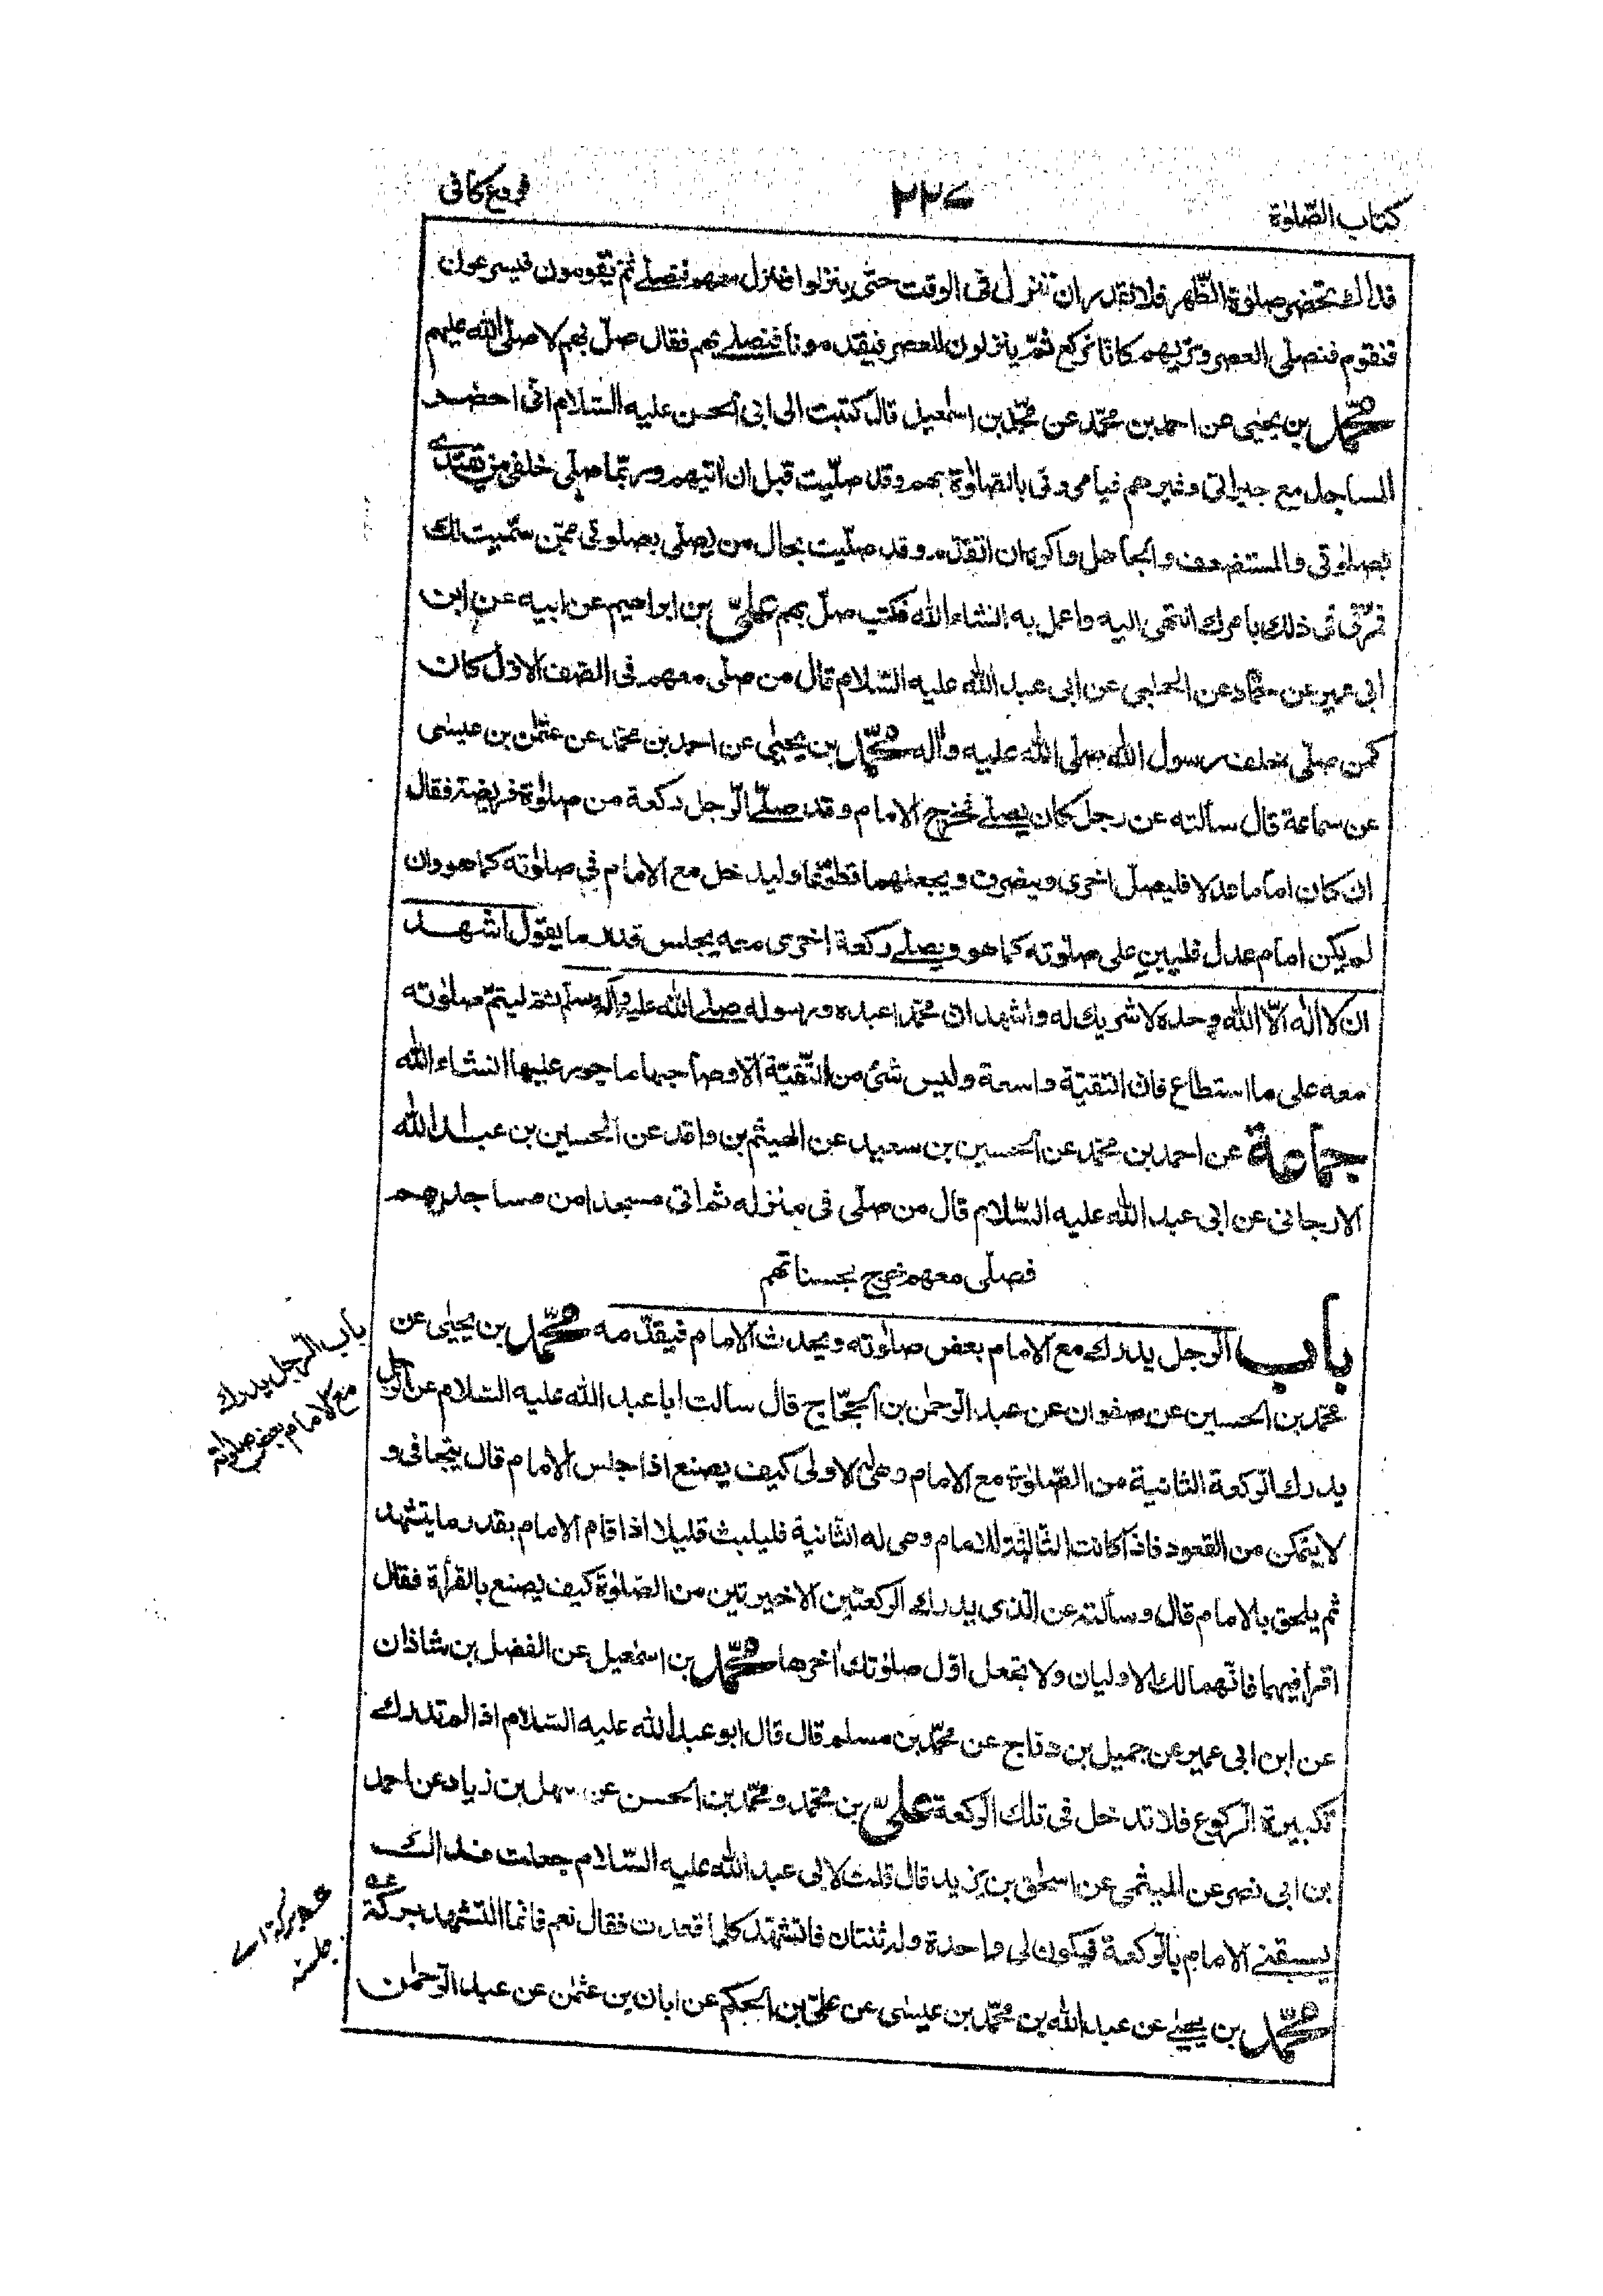 كتاب الصّلوٰة
٢٢٧
فروع كافى
فداك تحضر صلوٰة الظّهر فلا نقدر ان ننزل فى الوقت حتّى ينزلوا فننزل معهم فنصلّى ثمّ يقومون فيسرعون
فنقوم فنصلّى العصر ونريهم كانا نركع ثمّ ينزلون للعصر فيقدمونا فنصلّى بهم فقال صلّ بهم لا صلّى الله عليهم
محمّد بن يحيى عن احمد بن محمّد عن محمّد بن اسمٰعيل قال كتبت الى ابى الحسن عليه السّلام انّى احضر
المساجد مع جيرانى وغيرهم فيامرونى بالصّلوٰة بهم وقد صلّيت قبل ان اتيهم وربّما صلّى خلفى من يقتدى
بصلوٰتى والمستضعف والجاهل واكره ان اتقدّم وقد صلّيت بحال من يصلّى بصلوتى ممّن سمّيت لك
فمرنى فى ذلك بامرك انتهى اليه واعمل به انشاء الله فكتب صلّ بهم علىّ بن ابراهيم عن ابيه عن ابن
ابى عمير عن حمّاد عن الحلبى عن ابى عبد الله عليه السّلام قال من صلّى معهم فى الصّف الاوّل كان
كمن صلّى خلف رسول الله صلّى الله عليه واٰله محمّد بن يحيٰى عن احمد بن محمّد عن عثمٰن بن عيسى
عن سماعة قال سألته عن رجل كان يصلّى فخرج الامام وقد صلّى الرّجل ركعة من صلوٰة فريضة فقال
ان كان اماما عدلا فليصلّ اخرى وينصرف ويجعلهما تطوّعا وليدخل مع الامام فى صلوٰته كما هو وان
لم يكن امام عدل فليبن على صلوٰته كما هو ويصلّى ركعة اخرى معه يجلس قدر ما يقول اشهد
ان لا اله الّا الله وحده لا شريك له واشهد انّ محمّدا عبده ورسوله صلّى الله عليه واٰله وسلم ثم ليتمّ صلوٰته
معه على ما استطاع فانّ التقيّة واسعة وليس شئ من التّقيّة الّا وصاحبها ماجور عليها انشاء الله
جماعة عن احمد بن محمّد عن الحسين بن سعيد عن الهيثم بن واقد عن الحسين بن عبد الله
الارجانى عن ابى عبد الله عليه السّلام قال من صلّى فى منزله ثم اتى مسجدا من مساجدهم
فصلّى معهم خرج بحسناتهم
باب الرّجل يدرك مع الامام بعض صلوٰته ويحدث الامام فيقدّمه محمّد بن يحيٰى عن
محمّد بن الحسين عن صفوان عن عبد الرّحمٰن بن الحجّاج قال سألت ابا عبد الله عليه السّلام عن الرّجل
يدرك الرّكعة الثانية من الصّلوٰة مع الامام وهى له الاولى كيف يصنع اذا جلس الامام قال يتجافى و
لا يتمكن من القعود فاذا كانت الثّالثة للامام وهى له الثّانية فليلبث قليلا اذا قام الامام بقدر ما يتشهد
ثم يلحق بالامام قال وسألته عن الذى يدرك الرّكعتين الاخيرتين من الصّلوٰة كيف يصنع بالقرأة فقال
اقرأ فيهما فانّهما لك الاوليان ولا تجعل اوّل صلوٰتك اٰخرها محمّد بن اسمٰعيل عن الفضل بن شاذان
عن ابن ابى عمير عن جميل بن درّاج عن محمّد بن مسلم قال قال ابو عبد الله عليه السّلام اذا لم تدرك
تكبيرة الرّكوع فلا تدخل فى تلك الرّكعة علىّ بن محمّد ومحمّد بن الحسن عن سهل بن زياد عن احمد
بن ابى نصر عن الميثمى عن اسحٰق بن يزيد قال قلت لابى عبد الله عليه السّلام جعلت فداك
يسبقنى الامام بالرّكعة فيكون لى واحدة وله ثنتان فاتشهّد كلما قعدت فقال نعم فانّما التشهد بركة
محمّد بن يحيى عن عبد الله بن محمّد بن عيسى عن علىّ بن الحكم عن ابان بن عثمٰن عن عبد الرّحمٰن
باب الرّجل يدرك
مع الامام بعض صلوٰته
جلسته